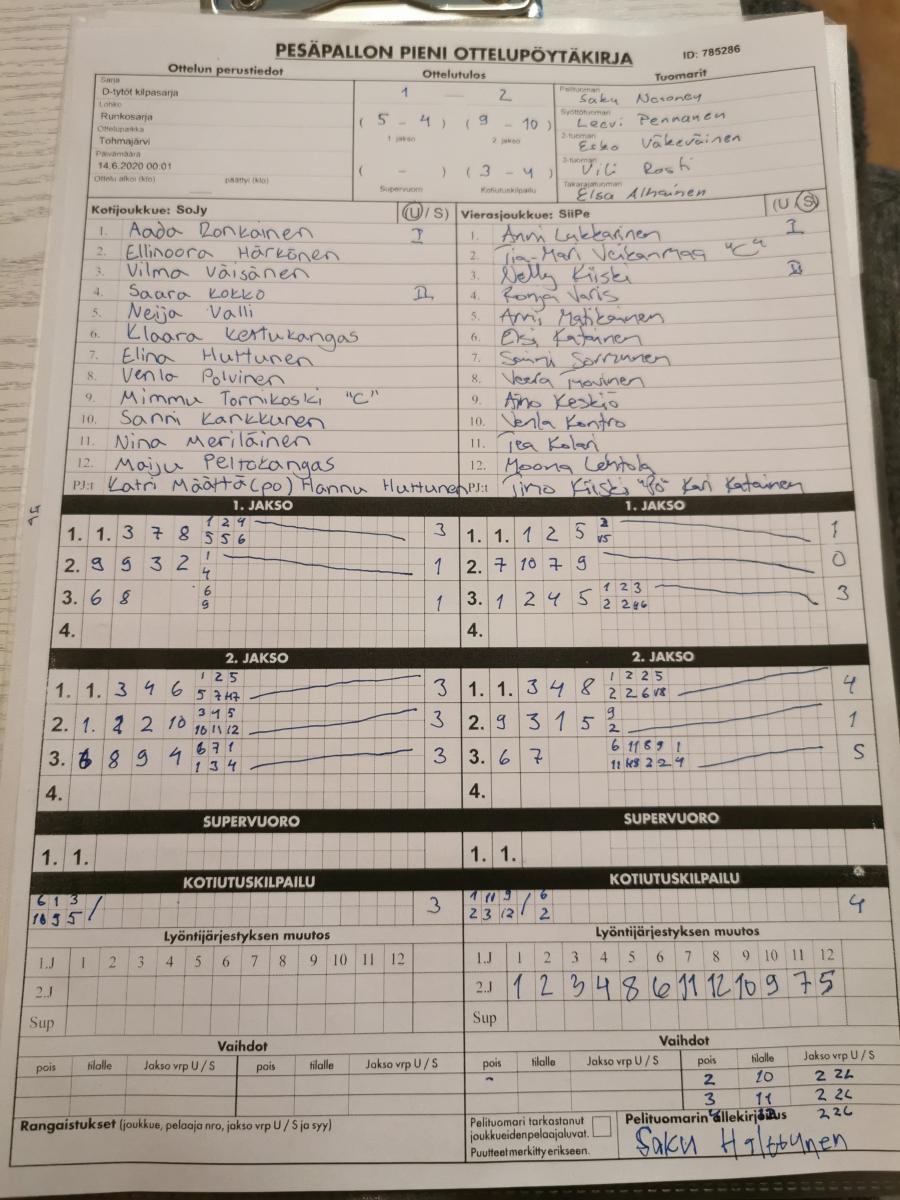 PESÄPALLON PIENI OTTELUPÖYTÄKIRJA ID: 785286
Ottelun perustiedot Ottelutulos Tuomarit
Sarja
D-tytöt kilpasarja
Lohko
Runkosarja
Ottelupaikka
Tohmajärvi
Päivämäärä
14.6.2020 00:01
Ottelu alkoi (klo) päättyi (klo)
1 — 2
( 5 - 4 ) ( 9 - 10 )
1 jakso 2 jakso
( - ) ( 3 - 4 )
Supervuoro Kotiutuskilpailu
Pelituomari
Saku
Syöttötuomari
Leevi Pennanen
2-tuomari
Esko Väkeväinen
3-tuomari
Vili Rosti
Takarajatuomari
Elsa Alhainen
Kotijoukkue: SoJy (U / S) Vierasjoukkue: SiiPe (U / S)
1. Aada Ronkainen I 1. Anni Lukkarinen I
2. Ellinoora Härkönen 2. Tia-Mari "C"
3. Vilma Väisänen 3. Nelly Kiiski II
4. Saara Kokko II 4. Ronja Varis
5. Neija Valli 5. Anni Matikainen
6. Klaara Kettukangas 6. Katainen
7. Elina Huttunen 7. Sorrunen
8. Venla Polvinen 8. Veera
9. Mimmu Tornikoski "C" 9. Aino Keskiö
10. Sanni Karkkunen 10. Venla Kontro
11. Nina Meriläinen 11. Tea Kolari
12. Maiju Peltokangas 12. Moona Lehtola
PJ:t Katri Määttä (po) Hannu Huttunen PJ:t Timo Kiiski Kari Katainen
1. JAKSO 1. JAKSO
1. 1. 3 7 8 1 2 4 3 1. 1. 1 2 5 2 1
5 5 6 v5
2. 9 9 3 2 1 1 2. 7 10 7 9 0
4
3. 6 8 6 1 3. 1 2 4 5 1 2 3 3
9 2 2
4. 4.
2. JAKSO 2. JAKSO
1. 1. 3 4 6 1 2 5 3 1. 1. 3 4 8 1 2 2 5 4
5 7 2 2 6 v8
2. 1. 2 2 10 3 4 5 3 2. 9 3 1 5 9 1
10 11 12 2
3. 6 8 9 4 6 7 1 3 3. 6 7 6 11 8 9 1 5
1 3 4 11 2 2 4
4. 4.
SUPERVUORO SUPERVUORO
1. 1. 1. 1.
KOTIUTUSKILPAILU KOTIUTUSKILPAILU
6 1 3 / 3 1 11 9 / 6 4
10 9 5 2 3 12 2
Lyöntijärjestyksen muutos Lyöntijärjestyksen muutos
1.J 1 2 3 4 5 6 7 8 9 10 11 12 1.J 1 2 3 4 5 6 7 8 9 10 11 12
2.J 2.J 1 2 3 4 8 6 11 12 10 9 7 5
Sup Sup
Vaihdot Vaihdot
pois tilalle Jakso vrp U / S pois tilalle Jakso vrp U / S pois tilalle Jakso vrp U / S pois tilalle Jakso vrp U / S
2 10
3 11
Rangaistukset (joukkue, pelaaja nro, jakso vrp U / S ja syy)
Pelituomari tarkastanut
joukkueidenpelaajaluvat.
Puutteet merkitty erikseen.
Pelituomarin allekirjoitus
Saku